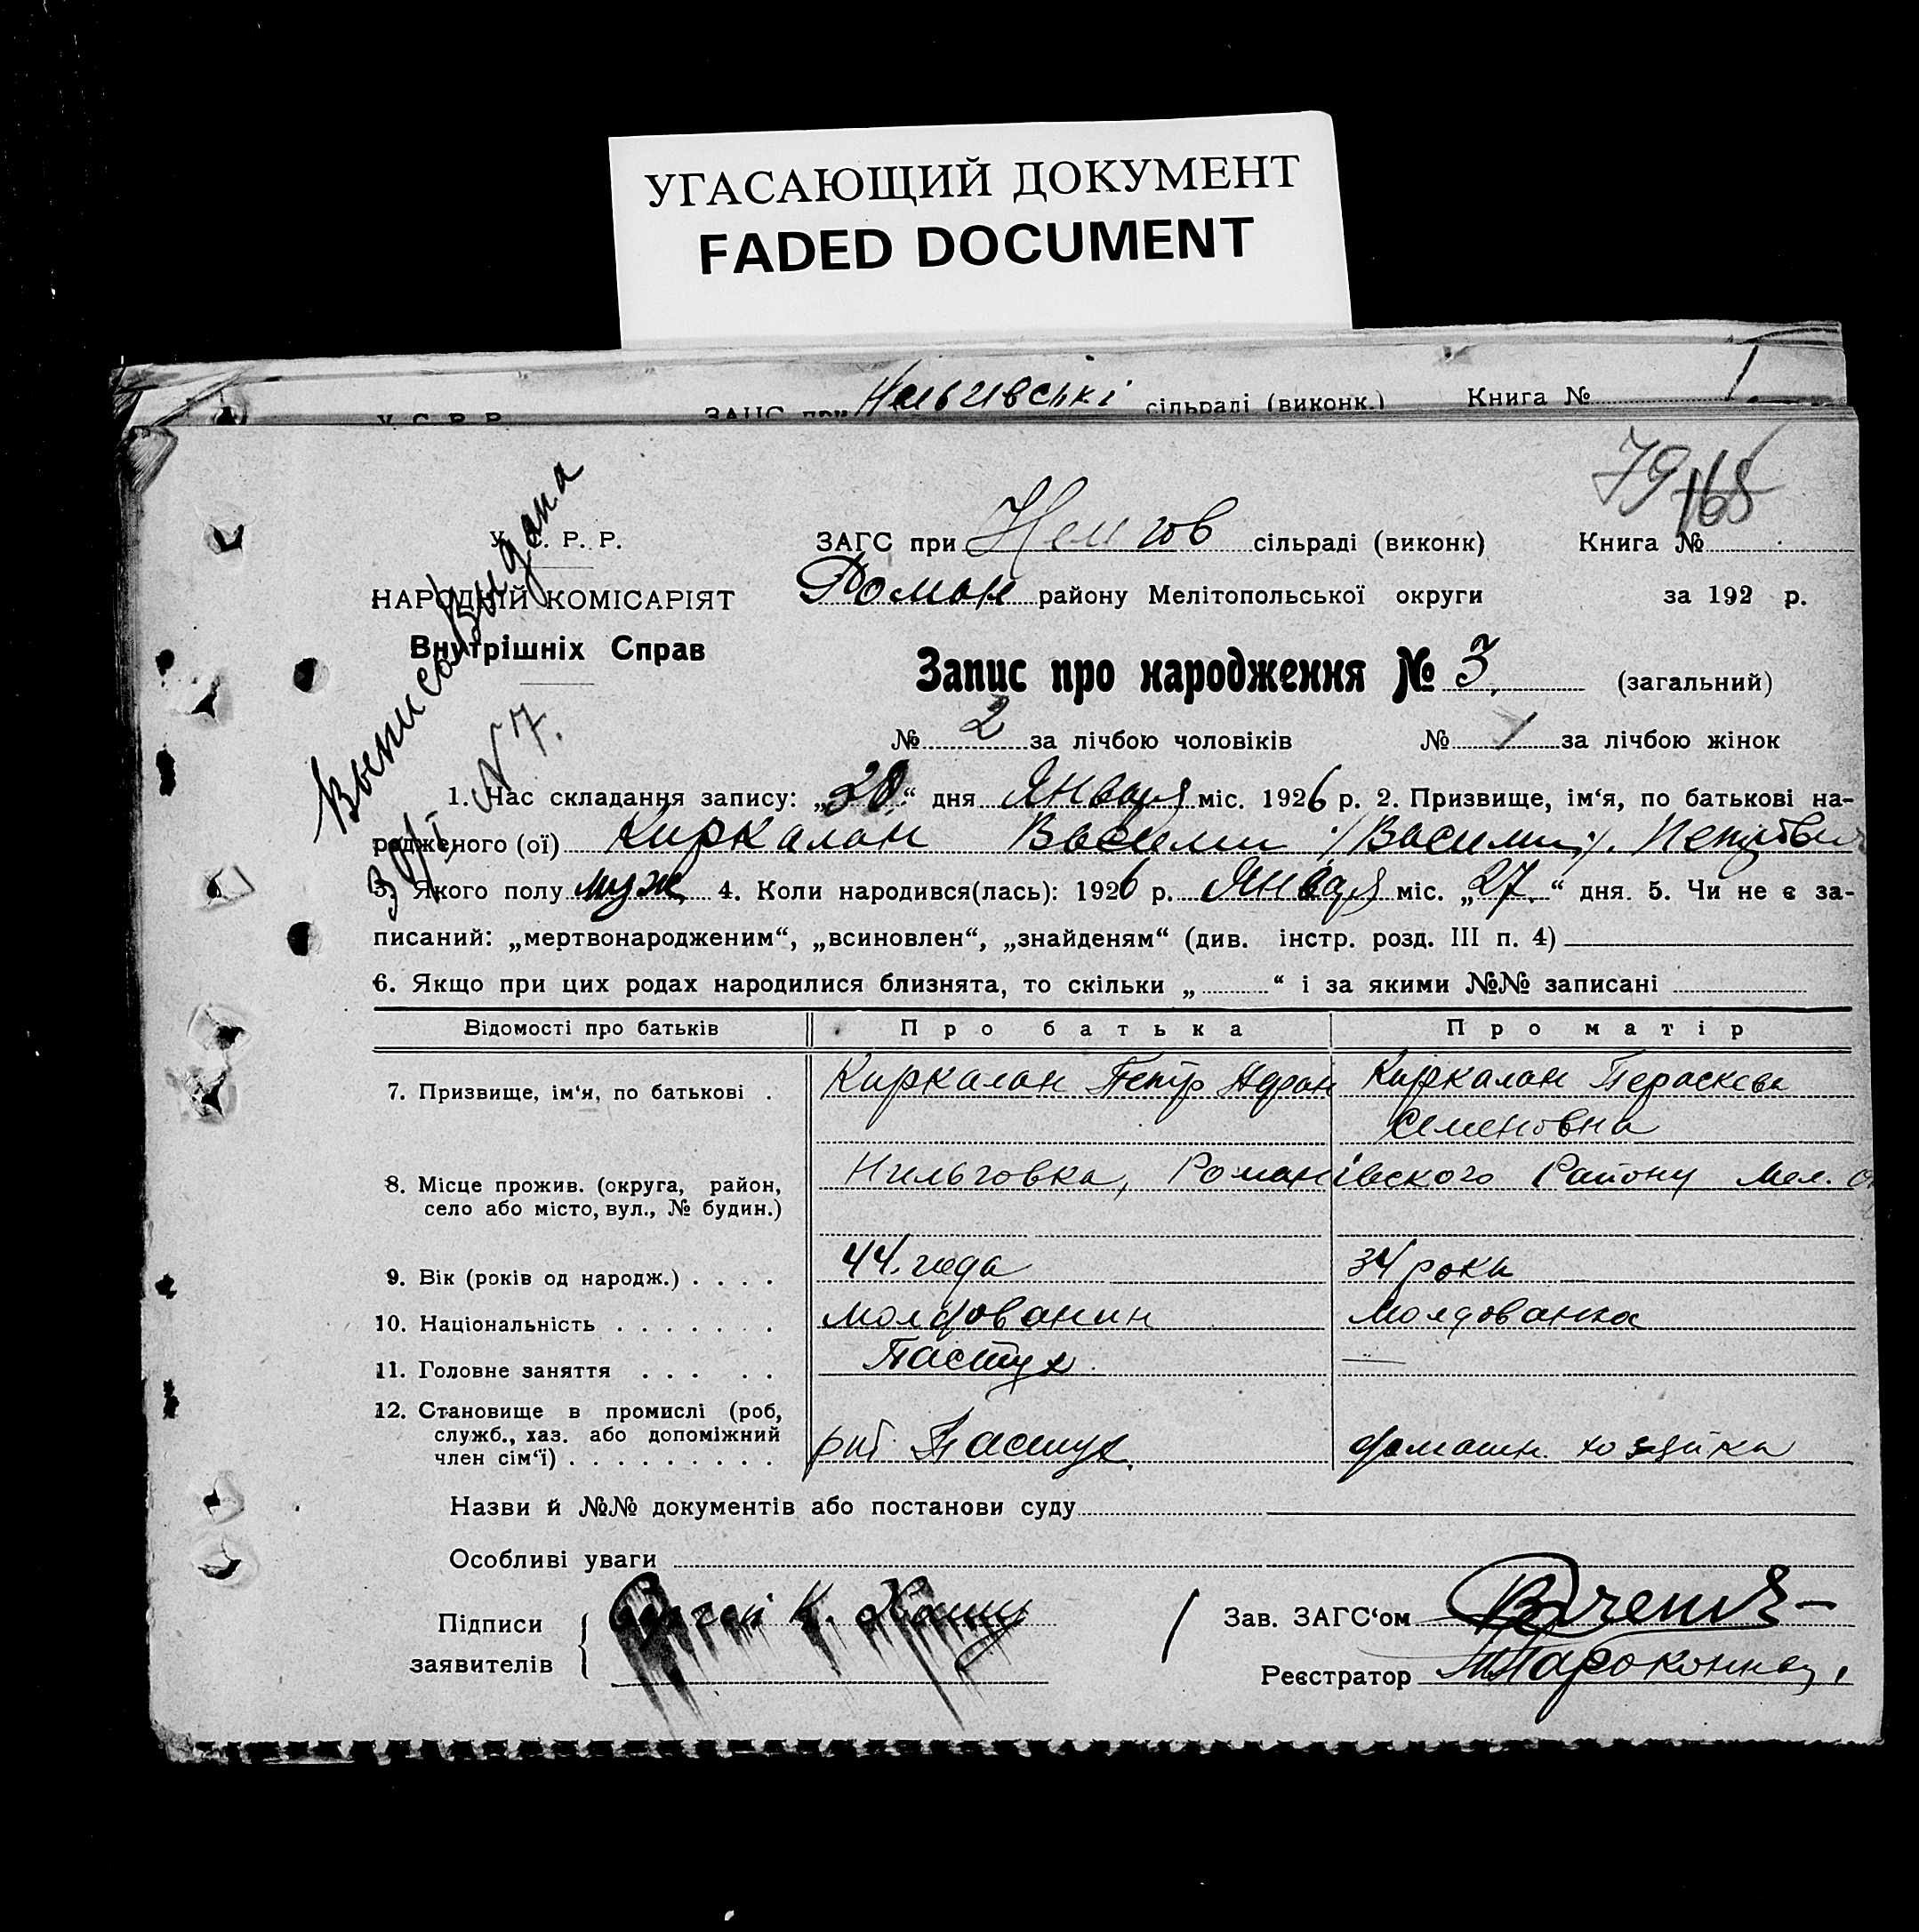 УГАСАЮЩИЙ ДОКУМЕНТ
FADED DOCUMENT
У. С. Р. Р. ЗАГС при сільраді (виконк.) Книга №
79 165
У. С. Р. Р. ЗАГС при сільраді (виконк) Книга №
НАРОДНІЙ КОМІСАРІЯТ Роман району Мелітопольської округи за 192 р.
Внутрішніх Справ
Выпись Выдана
N 7.
Запис про народження № 3. (загальний)
№ 2 за лічбою чоловіків № 1 за лічбою жінок
1. Час складання запису: „28“ дня Января міс. 1926 р. 2. Призвище, ім‘я, по батькові на-
родженого (ої) Киркалан Василий
3. Якого полу муж 4. Коли народився(лась): 1926 р. Января міс. „27.“ дня. 5. Чи не є за-
писаний: „мертвонародженим“, „всиновлен“, „знайденям“ (див. інстр. розд. III п. 4)
6. Якщо при цих родах народилися близнята, то скільки „ “ і за якими №№ записані
Відомості про батьків Про батька Про матір
7. Призвище, ім‘я, по батькові . Киркалан Петр Киркалан Параскева
Семеновна
8. Місце прожив. (округа, район, Нильговка, Романівского Району Мел. О
село або місто, вул., № будин.)
9. Вік (років од народж.) . . . . 44. года 34 рока
10. Національність . . . . . . . молдованин молдованка
11. Головне заняття . . . . . Пастух —
12. Становище в промислі (роб,
служб., хаз. або допоміжний
член сім‘ї) . . . . . . . . . раб Пастух. домашн. хозяйка
Назви й №№ документів або постанови суду
Особливі уваги
Підписи Зав. ЗАГС‘ом
заявителів Реєстратор